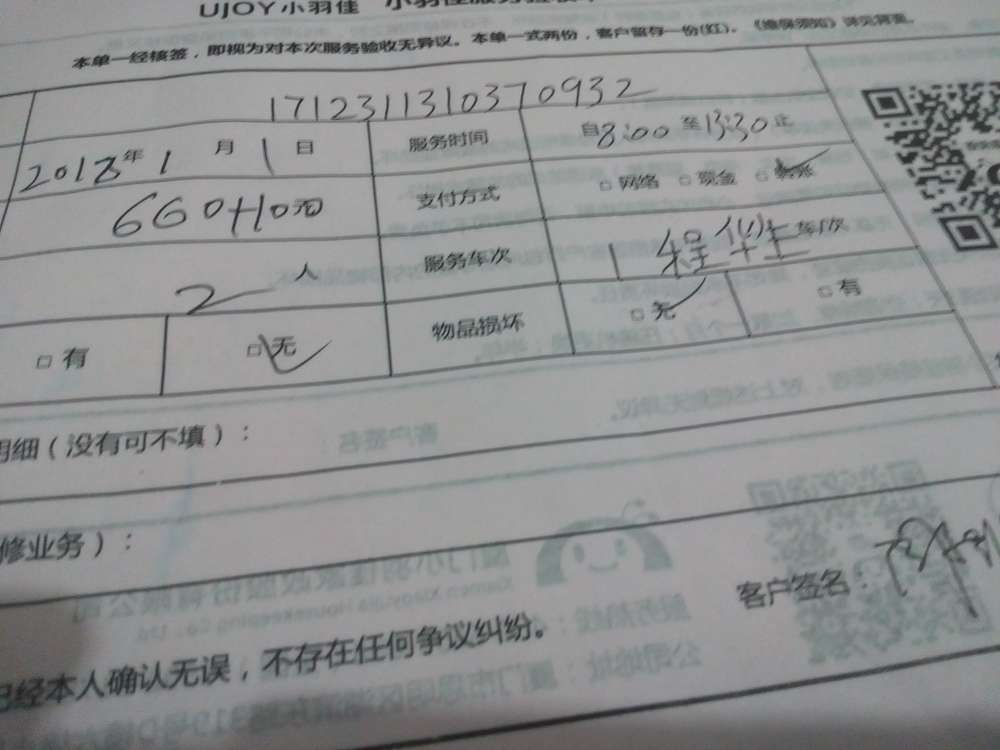 UJOY小羽佳
本单一经核签，即视为对本次服务验收无异议。本单一式两份，客户留存一份(红)。《维保须知》详见背面。
1712311310370932
2018年1月1日 服务时间 自8:00至13:30止
660+10元 支付方式 □网络 □现金 □转账
2人 服务车次 1 车/次
□有 □无 物品损坏 □无 □有
明细（没有可不填）：
修业务）：
客户签名：
已经本人确认无误，不存在任何争议纠纷。